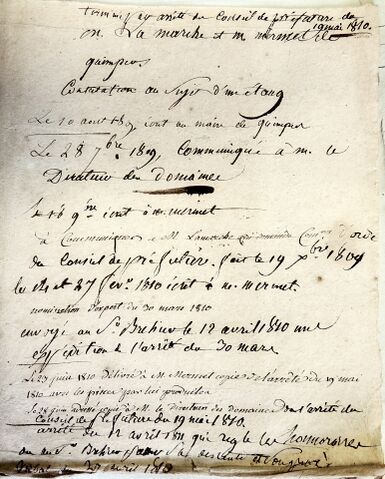 terminé par arrêté du Conseil de préfecture du
19 mai 1810.
M. La marche et M mermet de
quimper
Contestation au Sujet d'un étang
Le 10 aout 1809, écrit au maire de quimper
Le 28 7bre 1809, Communiqué à M. le
Directeur des domaines
Le 16 9bre écrit à M. mermet
à Communiquer à M Lamarche
du Conseil de préfecture. fait le 19 Xbre 1809
le 14 et 27 fevr 1810 écrit à M. Mermet.
nomination d'expert du 30 mars 1810
envoyé au Sr Brehier le 12 avril 1810 une
expédition de l'arrêté du 30 mars
Le 23 juin 1810 Délivré à M Mermet copie de l'arrêté du 19 mai
1810 avec les pièces par lui produites
Le 28 juin à M. le directeur des domaines de l'arrêté du
Conseil de préfecture du 19 mai 1810.
arrêté du 12 avril 1811 qui règle les honoraires
au Sr Brehier pour sa descente à
avril